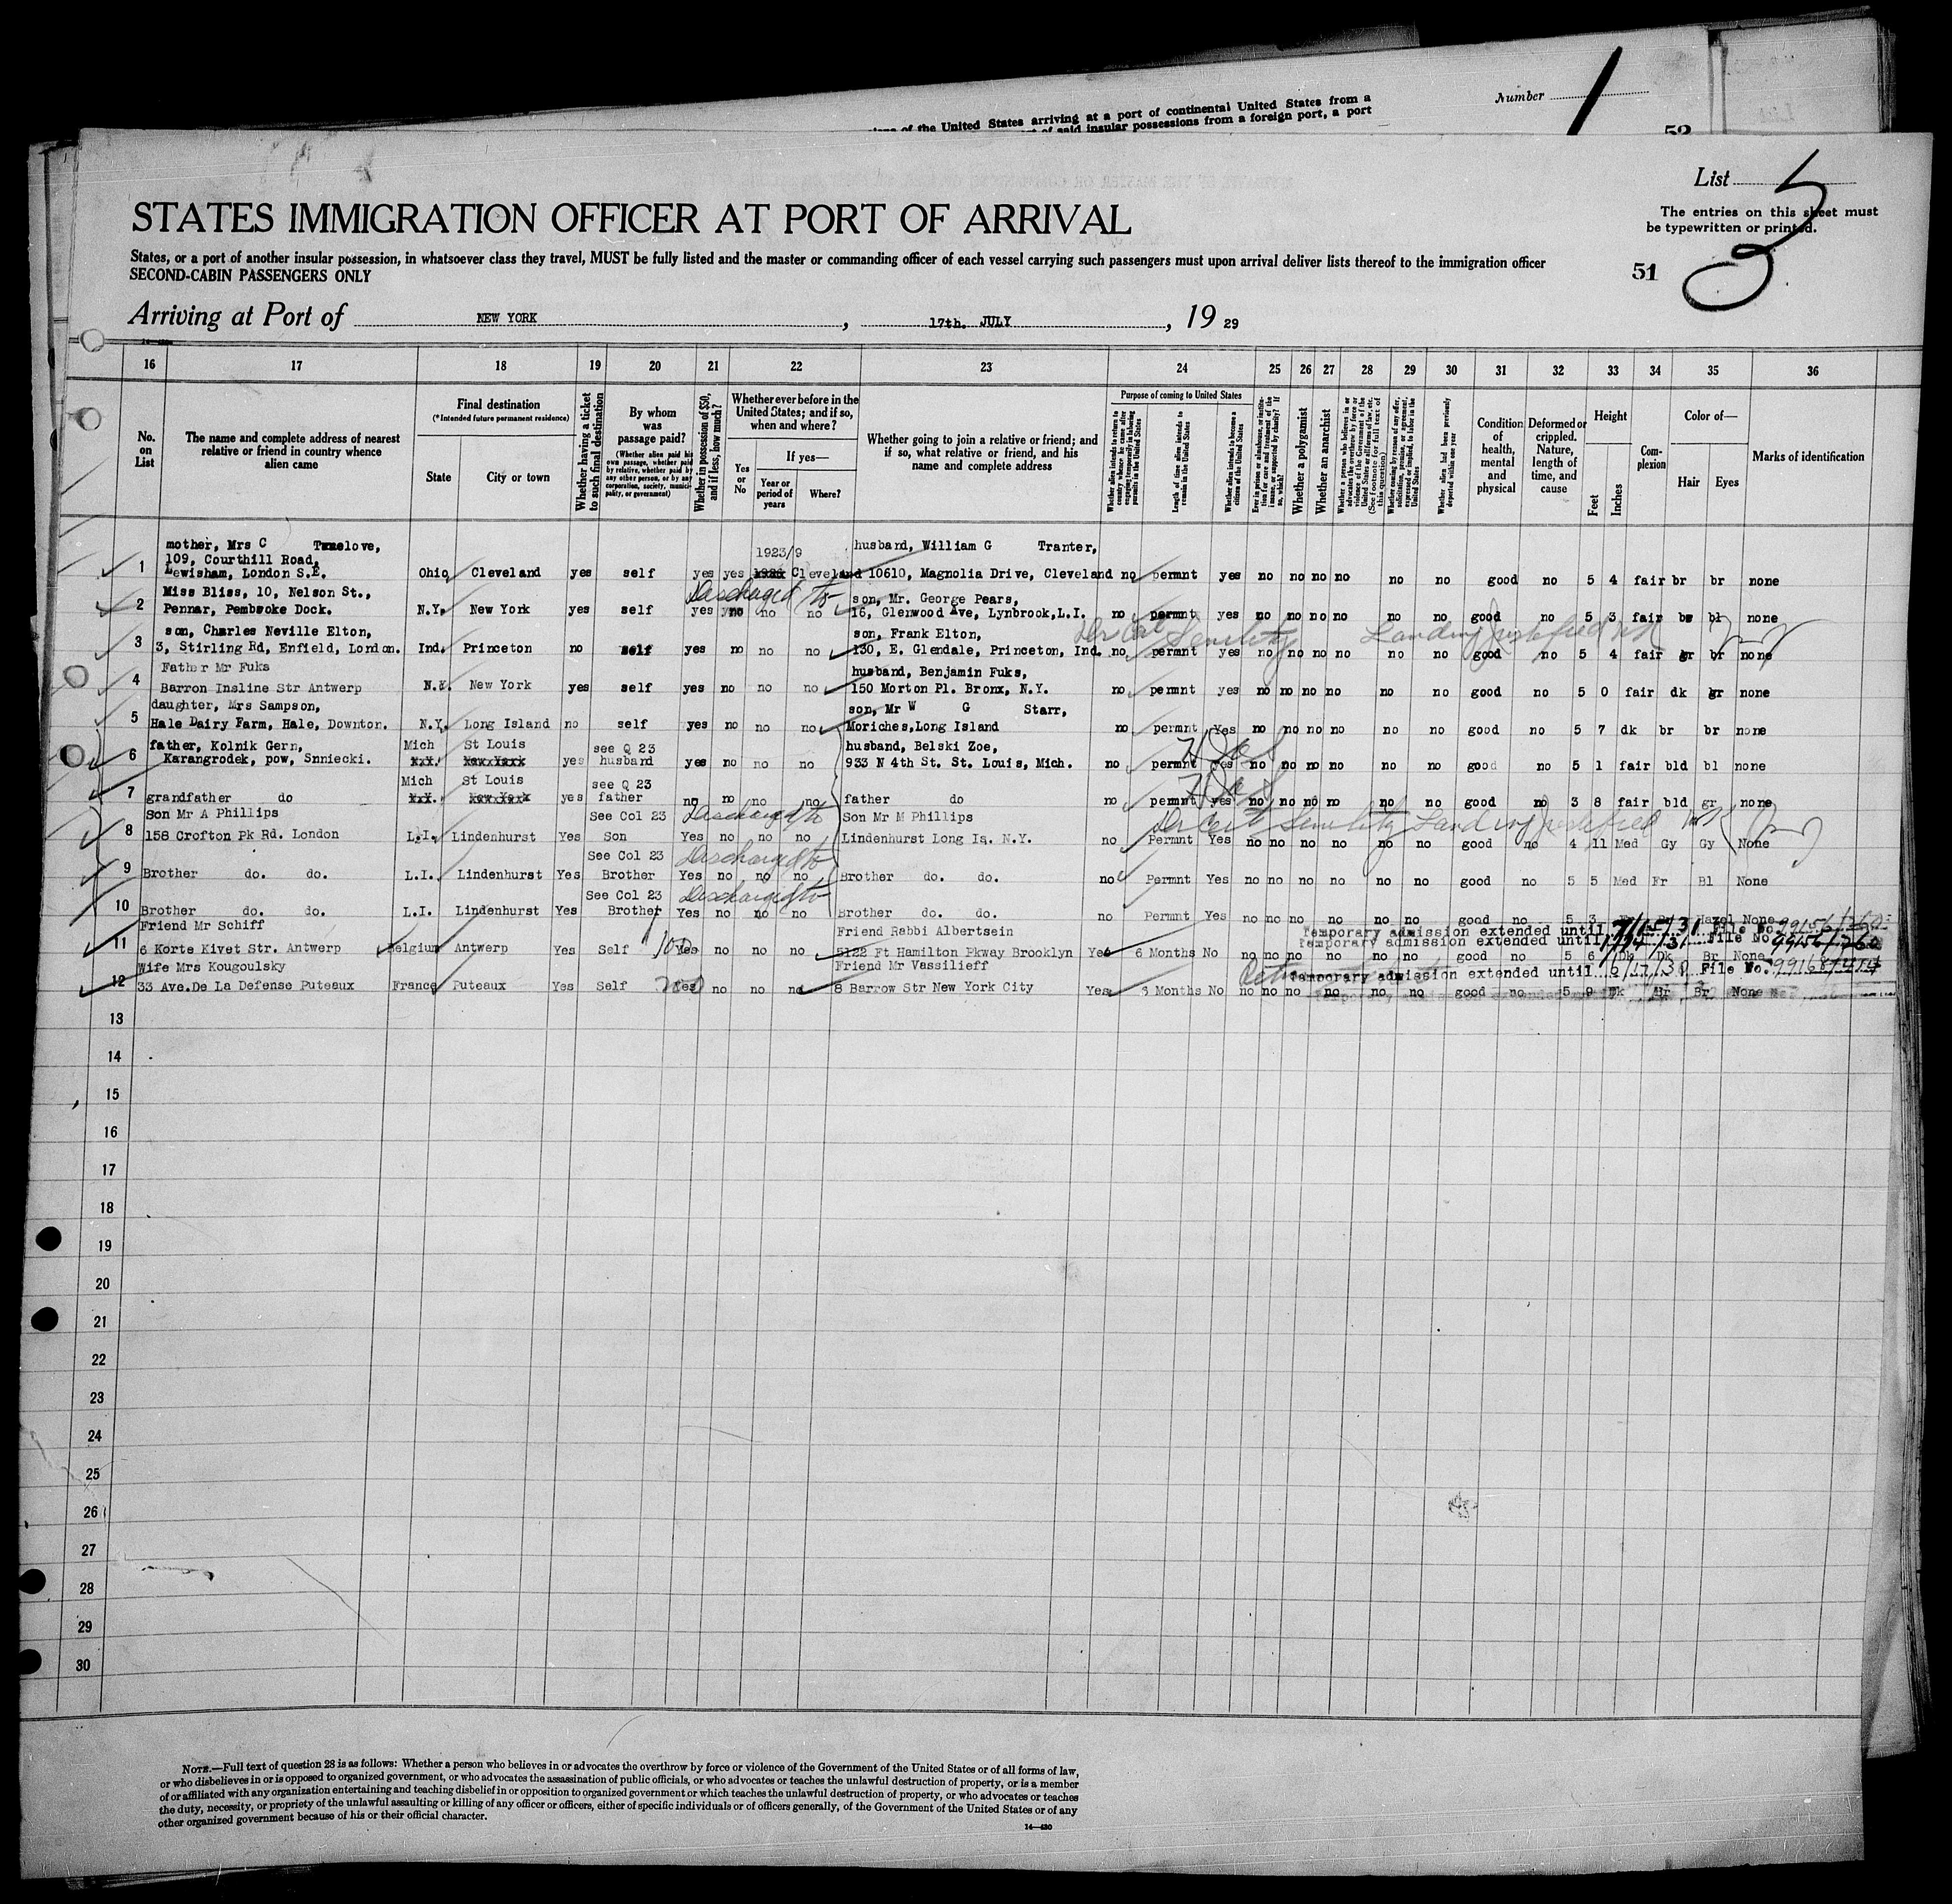 Number
ions of the United States arriving at a port of continental United States from a
rt of said insular possessions from a foreign port, a port
52
List 5
STATES IMMIGRATION OFFICER AT PORT OF ARRIVAL
The entries on this sheet must
be typewritten or printed.
States, or a port of another insular possession, in whatsoever class they travel, MUST be fully listed and the master or commanding officer of each vessel carrying such passengers must upon arrival deliver lists thereof to the immigration officer
SECOND-CABIN PASSENGERS ONLY
51
Arriving at Port of NEW YORK, 17th. JULY, 19 29
16 17 18 19 20 21 22 23 24 25 26 27 28 29 30 31 32 33 34 35 36
No. on List
The name and complete address of nearest relative or friend in country whence alien came
Final destination
(*Intended future permanent residence)
State
City or town
Whether having a ticket to such final destination
By whom was passage paid?
(Whether alien paid his own passage, whether paid by relative, whether paid by any other person, or by any corporation, society, municipality, or government)
Whether in possession of $50, and if less, how much?
Whether ever before in the United States; and if so, when and where?
Yes or No
If yes—
Year or period of years
Where?
Whether going to join a relative or friend; and if so, what relative or friend, and his name and complete address
Purpose of coming to United States
Length of time alien intends to remain in the United States
Whether alien intends to become a citizen of the United States
Whether a polygamist
Whether an anarchist
Whether alien had been previously deported within one year
Condition of health, mental and physical
Deformed or crippled. Nature, length of time, and cause
Height
Feet
Inches
Complexion
Color of—
Hair
Eyes
Marks of identification
mother, Mrs C Truelove,
109, Courthill Road, 1923/9 husband, William G Tranter,
1 Lewisham, London S.E. Ohio Cleveland yes self yes yes Cleveland 10610, Magnolia Drive, Cleveland no permnt yes no no no no no no good no 5 4 fair br br none
Miss Bliss, 10, Nelson St., Discharged to son, Mr. George Pears,
2 Pennar, Pembroke Dock. N.Y. New York yes self yes no no no 16, Glenwood Ave, Lynbrook, L.I. no permnt yes no no no no no no good no 5 3 fair br bl none
son, Charles Neville Elton, son, Frank Elton, Senility Landing justified
3 3, Stirling Rd, Enfield, London. Ind. Princeton no self yes no no no 130, E. Glendale, Princeton, Ind. no permnt yes no no no no no no good no 5 4 fair gr br none
Father Mr Fuks husband, Benjamin Fuks,
4 Barron Insline Str Antwerp N.Y. New York yes self yes no no no 150 Morton Pl. Bronx, N.Y. no permnt yes no no no no no no good no 5 0 fair dk gr none
daughter, Mrs Sampson, son, Mr W G Starr,
5 Hale Dairy Farm, Hale, Downton. N.Y. Long Island no self yes no no no Moriches, Long Island no permnt Yes no no no no no no good no 5 7 dk br br none
father, Kolnik Gern, Mich St Louis see Q 23 husband, Belski Zoe,
6 Karangrodek, pow, Snniecki. N.Y. New York yes husband yes no no no 933 N 4th St. St. Louis, Mich. no permnt yes no no no no no no good no 5 1 fair bld bl none
Mich St Louis see Q 23
7 grandfather do N.Y. New York yes father no no no no father do no permnt yes no no no no no no good no 3 8 fair bld gr none
Son Mr A Phillips See Col 23 Discharged to Son Mr M Phillips Dr Cert Senility Landing justified
8 158 Crofton Pk Rd. London L.I. Lindenhurst Yes Son Yes no no no Lindenhurst Long Is. N.Y. no Permnt Yes no no no no no no good no 4 11 Med Gy Gy None
See Col 23 Discharged to
9 Brother do. do. L.I. Lindenhurst Yes Brother Yes no no no Brother do. do. no Permnt Yes no no no no no no good no 5 5 Med Fr Bl None
See Col 23 Discharged to
10 Brother do. do. L.I. Lindenhurst Yes Brother Yes no no no Brother do. do. no Permnt Yes no no no no no no good no 5 3 Hazel None
Friend Mr Schiff Friend Rabbi Albertsein Temporary admission extended until 7/15/31 File No. 99156/360
Temporary admission extended until File No 99156/360
11 6 Korte Kivet Str. Antwerp Belgium Antwerp Yes Self 100 Yes no no no 5122 Ft Hamilton Pkway Brooklyn Yes 6 Months No no no no no no no good no 5 6 Dk Dk Br None
Wife Mrs Kougoulsky Friend Mr Vassilieff Temporary admission extended until 6/17/30 File No. 99168/414
12 33 Ave. De La Defense Puteaux France Puteaux Yes Self 200 Yes no no no 8 Barrow Str New York City Yes 6 Months No no no no no no no good no 5 9 Dk Br Br None
13
14
15
16
17
18
19
20
21
22
23
24
25
26
27
28
29
30
NOTE.—Full text of question 28 is as follows: Whether a person who believes in or advocates the overthrow by force or violence of the Government of the United States or of all forms of law,
or who disbelieves in or is opposed to organized government, or who advocates the assassination of public officials, or who advocates or teaches the unlawful destruction of property, or is a member
of or affiliated with any organization entertaining and teaching disbelief in or opposition to organized government or which teaches the unlawful destruction of property, or who advocates or teaches
the duty, necessity, or propriety of the unlawful assaulting or killing of any officer or officers, either of specific individuals or of officers generally, of the Government of the United States or of any
other organized government because of his or their official character.
14—430